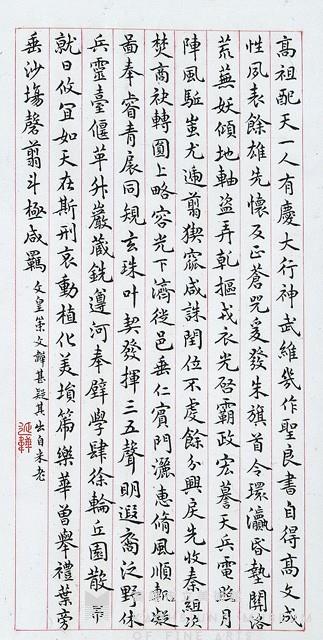 高祖配天一人有慶大行神武維幾作聖良書自得高文成
性風表餘雄先懷及正蒼兕爰發朱旗首令環瀛昏墊關洛
荒蕪妖傾地軸盜弄乾樞戎衣光啓霸政宏謩天兵電照月
陣風驅蚩尤遄翦猰窳咸誅閏位不虔餘分興戾先收秦組次
焚商袂轉圜上略容光下濟從邑垂仁賓門灑惠脩風順軌凝
圖奉睿青扆同規玄珠叶契發揮三五聲明遐裔泛野休
兵靈臺偃革升巖藏銑薄河奉璧學肆徐輪丘園散帛
就日攸宜如天在斯刑哀動植化美塤篪樂華曾舉禮葉旁
垂沙塲罄翦斗極咸羈 文皇崇文辭甚疑其出自來老
OF FINE ARTS